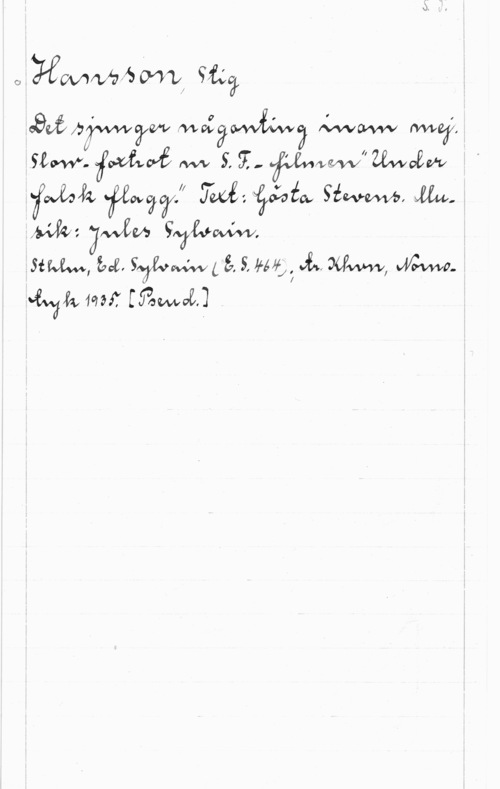 S. J.
Hansson, Stig
Det sjunger någonting inom mej.
Slow-foxtrot ur S.F.-filmen "Under
falsk flagg." Text: Gösta Stevens. Mu-
sik: Jules Sylvain.
Sthlm, Ed. Sylvain (E. S. 464), tr. Khvn, Norno-
tryk 1935. [Pseud.]